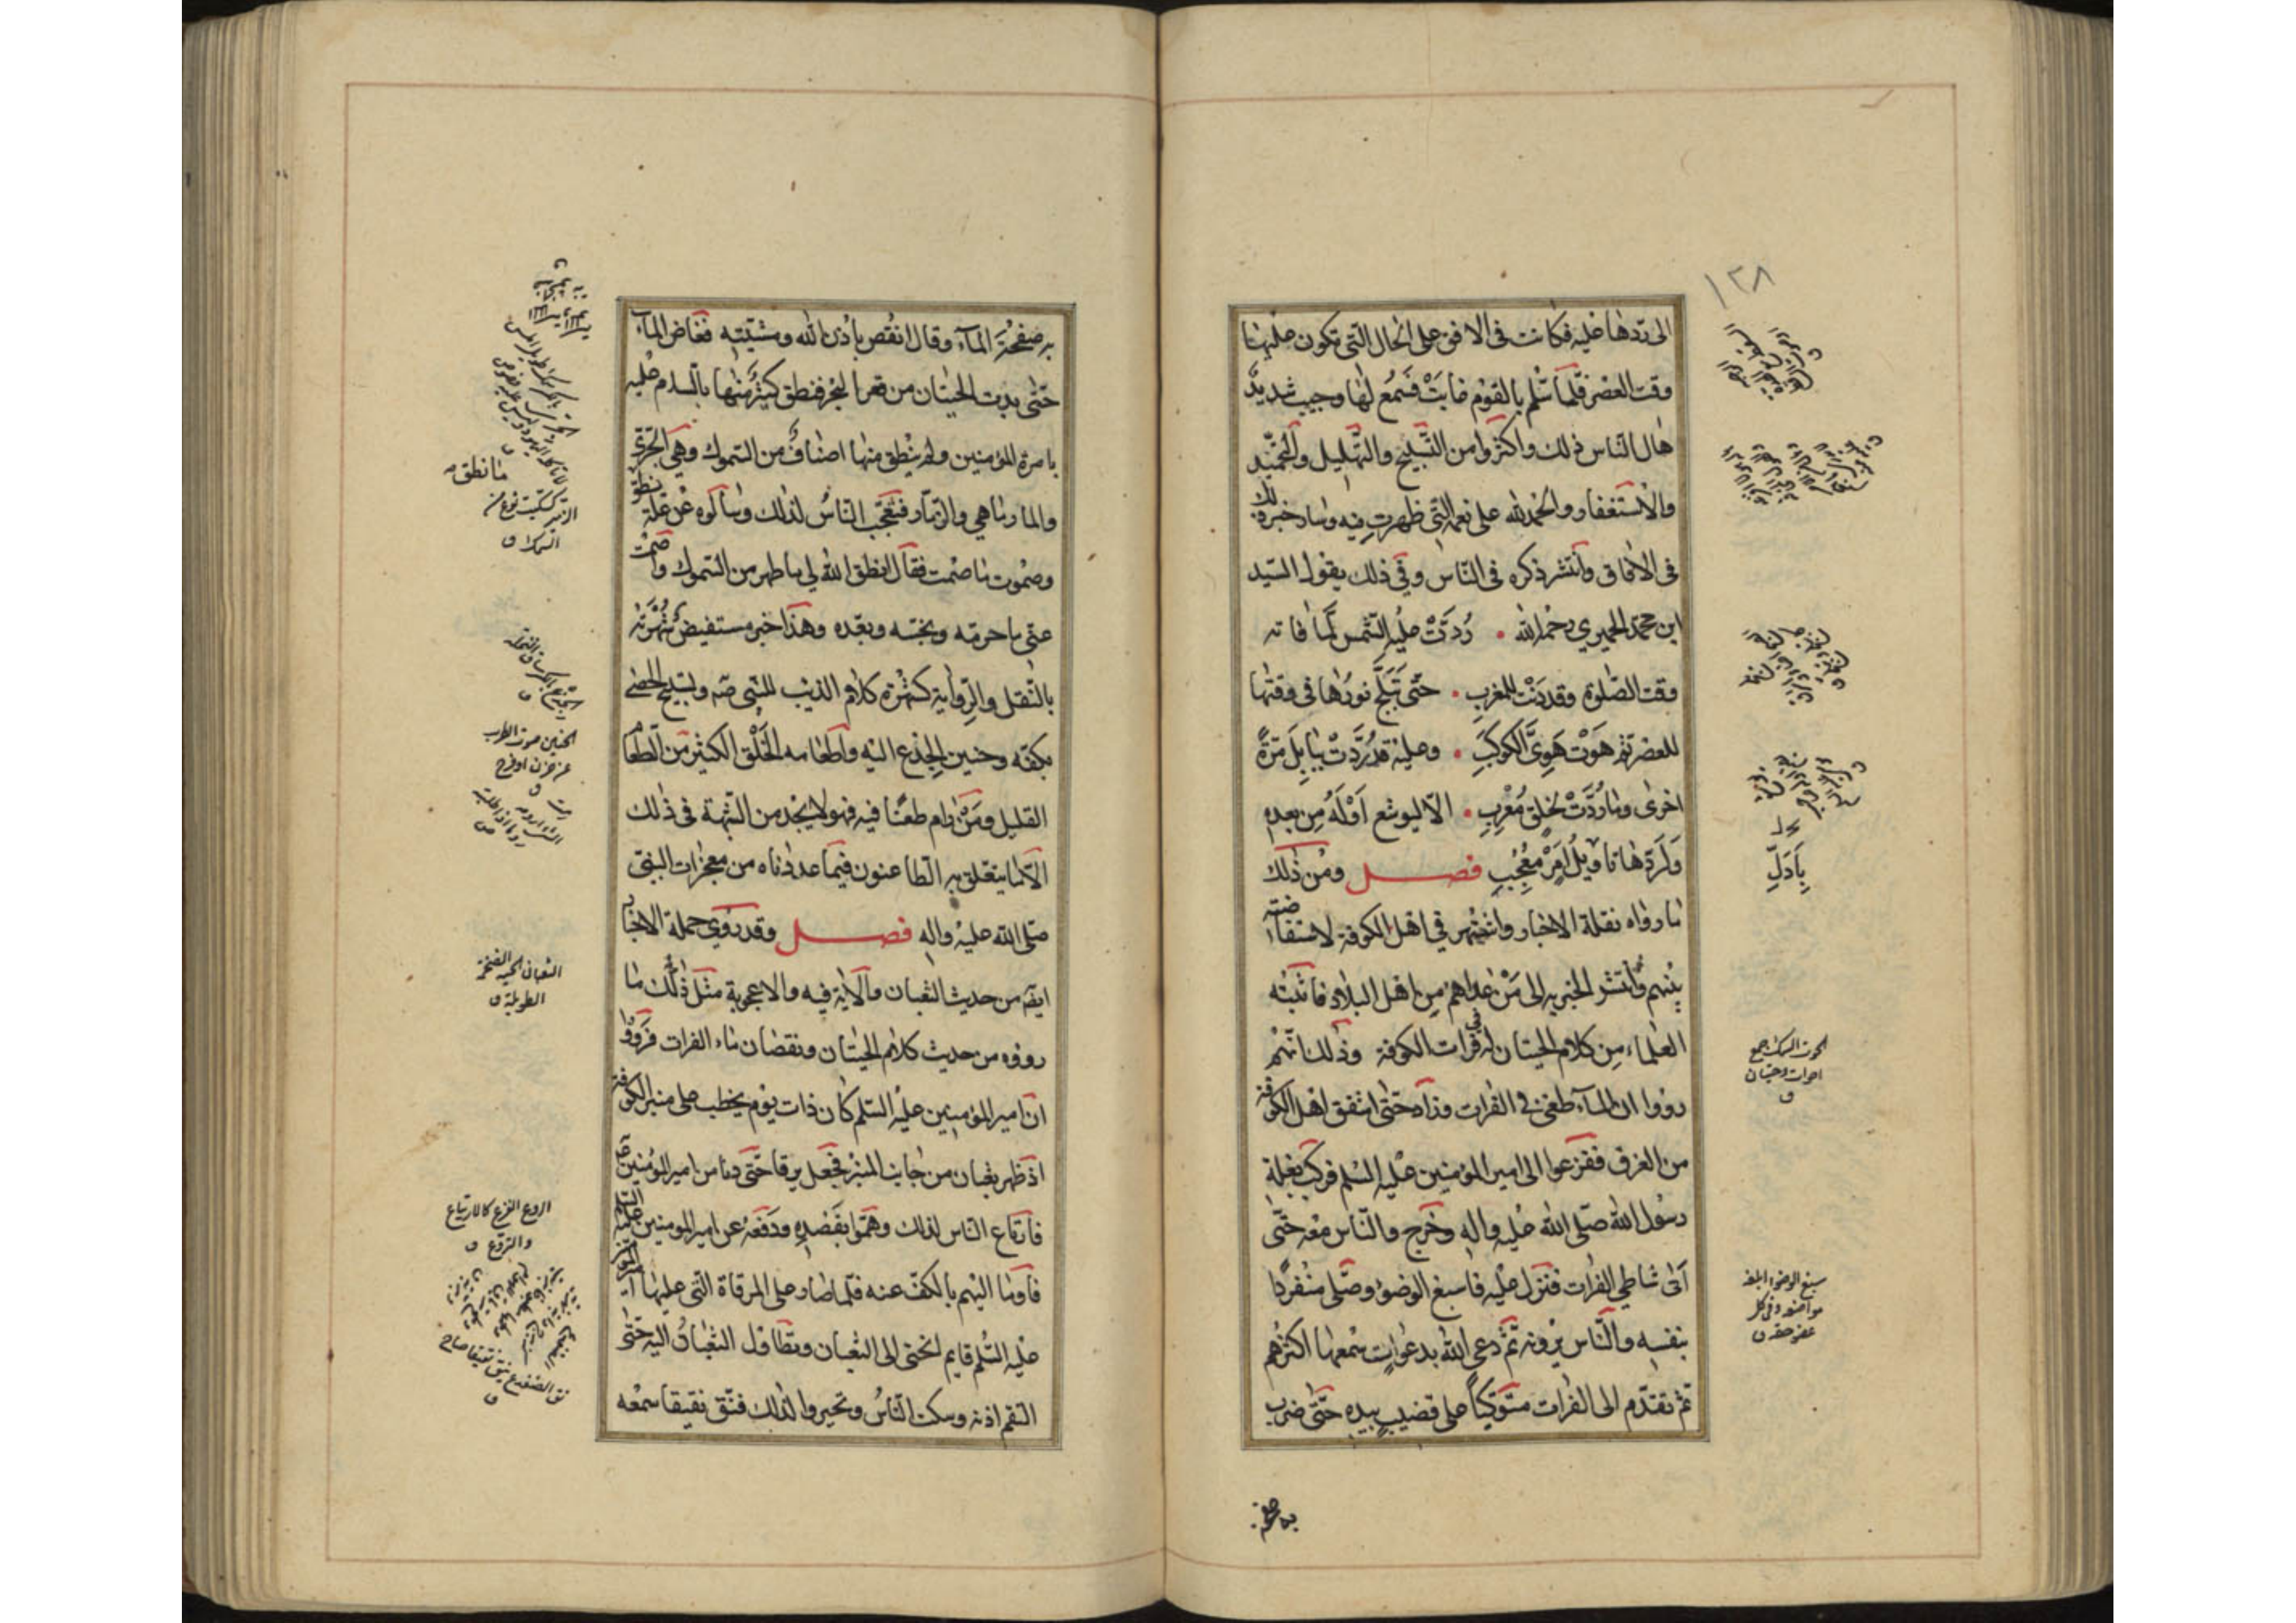 ١٣٨
الى ردها عليه فكانت في الافق على الحال التي تكون عليها
وقت العصر فلما سلم بالقوم غابت فسمع لها وجيب شديد
هال الناس ذلك واكثروا من التسبيح والتهليل والتحميد
والاستغفار والحمد لله على نعمه التي ظهرت فيه وسار خبر ذلك
في الافاق وانتشر ذكره في الناس وفي ذلك يقول السيد
ابن محمد الحميري رحمه الله • رُدَّتْ عليه الشمس لمّا فاته
وقت الصلوة وقد دَنَتْ للمغرب • حتّى تَبَلَّجَ نورُها في وقتها
للعصر ثم هَوَتْ هَوِيَّ الكوكبِ • وعليه قد رُدَّتْ ببابِلَ مَرَّةً
اخرى وما رُدَّتْ لخلقٍ مُعْرِبِ • الّا ليوشع اَوْلَهُ مِن بعده
وَلَرَدّها تاويلُ اَمْرٍ مُعْجِبِ فصل ومن ذلك
ما رواه نقلة الاخبار واشتهر في اهل الكوفة لاستفاضته
بينهم وانتشر الخبر به الى مَنْ عداهم من اهل البلاد فاثبته
العلماء من كلام الحيتان له في فرات الكوفة وذلك انّهم
رووا ان الماء طغى في الفرات وزاد حتّى اشفق اهل الكوفة
من الغرق ففزعوا الى امير المؤمنين عليه السلم فركب بغلة
رسول الله صلّى الله عليه واله وخرج والناس معه حتّى
اتى شاطئ الفرات فنزل عليه فاسبغ الوضوء وصلّى منفردًا
بنفسه والنّاس يرونه ثمّ دعى الله بدعوات سمعها اكثرهم
ثم تقدّم الى الفرات متوكّيًا على قضيب بيده حتّى ضرب
به صفحة
بَادَلِّ
الحوت السمك جمع
احوات وحيتان
ق
سبغ الوضوء ابلغه
مواضعه وفى كل
عضو حقه ق
به صفحة الماء وقال انقص باذن الله ومشيّته فغاض الماء
حتّى بدت الحيتان من قعر البحر فنطق كثير منها بالسلام عليه
بامرة المؤمنين ولم ينطق منها اصناف من السموك وهي الجرّي
والمارماهي والزمّار فتعجّب الناس لذلك وسألوه عن علّة نطق
ما نطق
وصموت ما صمت فقال انطق الله لي ما طهر من السموك واصمت
عنّى ما حرمه ونجّسه وبعّده وهذا خبر مستفيض شهرته
بالنّقل والرّواية كشهرة كلام الذيب للنبي صه وتسبيح الحصى
بكفّه وحنين الجذع اليه واطعامه الخلق الكثير من الطعام
القليل ومَنْ رام طعنًا فيه فهو لا يجد من الشبهة في ذلك
الّا ما يتعلق به الطاعنون فيما عددناه من معجزات النبي
صلّى الله عليه واله فصل وقد روى حملة الاخبار
ايضا من حديث الثعبان والآية فيه والاعجوبة مثل ذلك ما
رووه من حديث كلام الحيتان ونقصان ماء الفرات فرووا
ان امير المؤمنين عليه السلم كان ذات يوم يخطب على منبر الكوفة
اذ ظهر ثعبان من جانب المنبر فجعل يرقا حتّى دنا من امير المؤمنين
فارتاع الناس لذلك وهمّوا بقصده ودفعه عن امير المومنين عليه السلم
فاومأ اليهم بالكفّ عنه فلمّا صار على المرقاة التي عليها امير المؤمنين
عليه السّلم قايم انحنى الى الثعبان وتطاول الثعبان اليه حتّى
التقم اذنه وسكت الناس وتحيروا لذلك فنقّ نقيقا سمعه
الحنين صوت الطرب
عن حزن او فرح
ق
الثعبان الحية الضخمة
الطويلة ق
الروع الفزع كالارتياع
والتروع ق
نق الضفدع ينق نقيقا صاح
ق